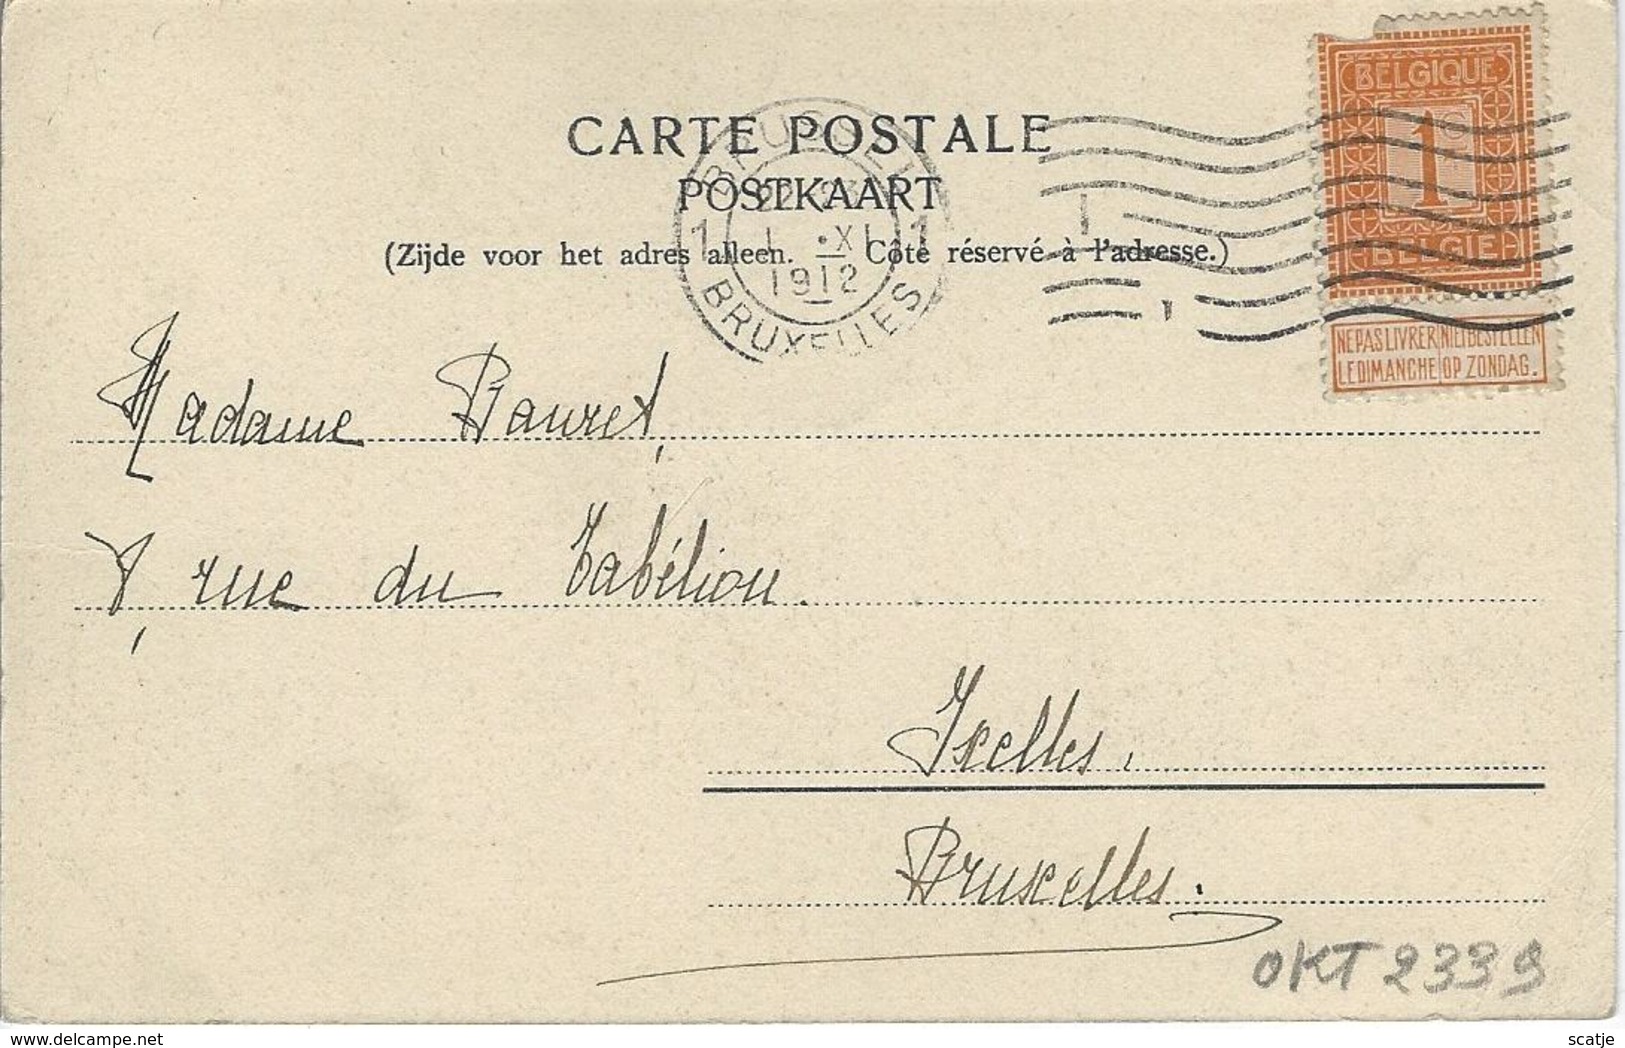 CARTE POSTALE
POSTKAART
(Zijde voor het adres alleen. — Côté réservé à l'adresse.)
BRUSSEL
1 1
I •XI
1912
BRUXELLES
BELGIQUE
1c
BELGIE
NE PAS LIVRER NIET BESTELLEN
LE DIMANCHE OP ZONDAG.
Madame Bauret,
rue du Tabélion.
Ixelles.
Bruxelles.
OKT 2339
delcampe.net
scatje